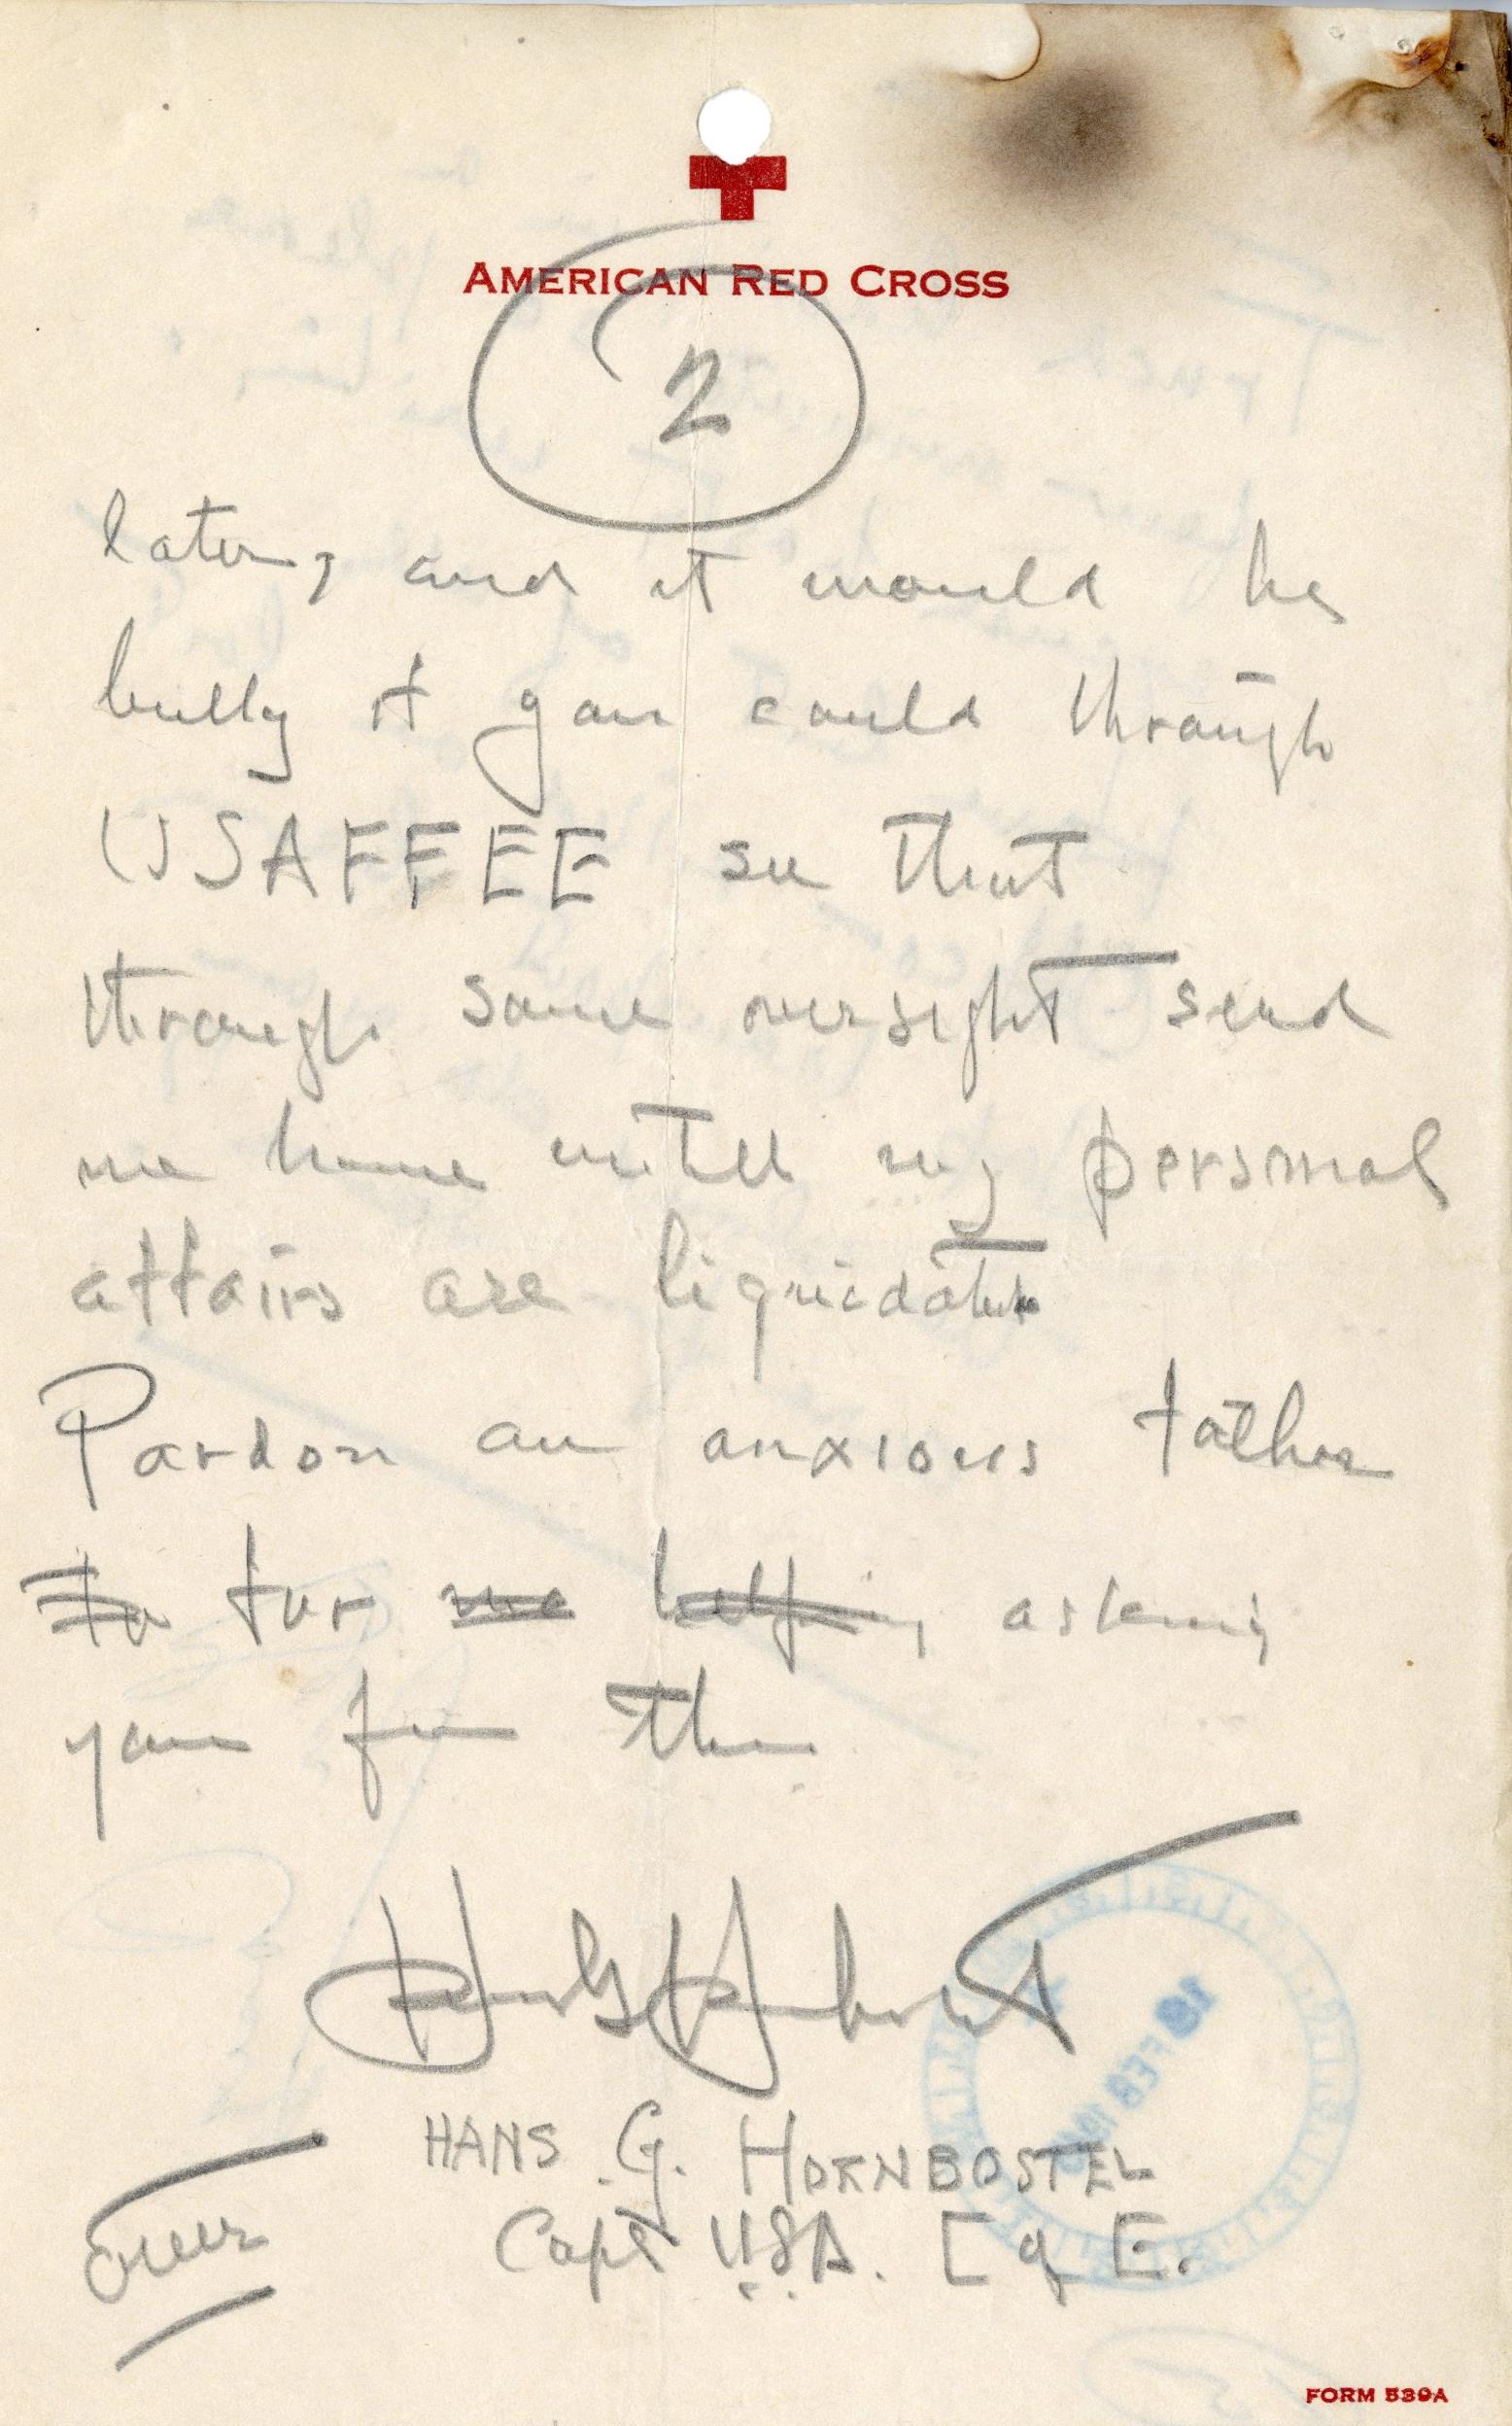 AMERICAN RED CROSS
2
later, and it would be
bully if you could through
USAFFEE see that
through some oversight send
me home until my personal
affairs are liquidated
Pardon an anxious father
to for me helping asking
you for this
Hans G Hornbostel
HANS G. HORNBOSTEL
Capt USA. C of E.
Over
18 FEB
FORM 539A